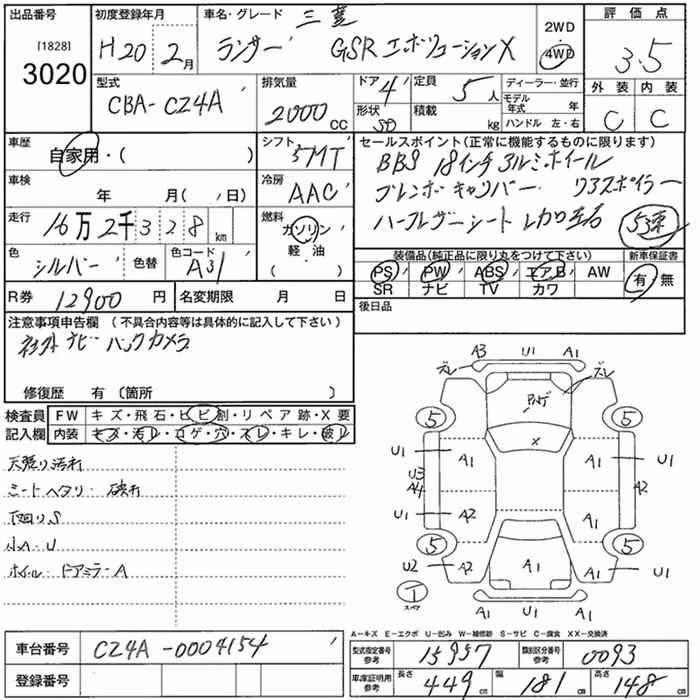 出品番号 初度登録年月 車名・グレード 三菱 評価点
[1828] H20 2月 ランサー GSR エボリューションX 2WD
3020 4WD 3.5
型式 排気量 ドア 4 定員 5人 ディーラー・並行 外装 内装
CBA-CZ4A 2000 CC 形状 SD 積載 kg モデル年式 年 C C
ハンドル 左・右
車歴 自家用・( ) シフト 5MT セールスポイント(正常に機能するものに限ります)
車検 年 月( 日) 冷房 AAC BBS 18インチアルミホイール
走行 16万2千328km 燃料 ガソリン ブレンボキャリパー リアスポイラー
軽・油 ハーフレザーシート レカロ 5速
色 シルバー 色替 色コード A31 装備品(純正品に限り丸をつけて下さい) 新車保証書
PS PW ABS エアB AW 有・無
R券 12900円 名変期限 月 日 SR ナビ TV カワ
注意事項申告欄 (不具合内容等は具体的に記入して下さい) 後日品
社外ナビ バックカメラ
修復歴 有 (箇所 )
検査員 FW キズ・飛石・ヒビ割・リペア跡・X要
記入欄 内装 キズ・汚レ・コゲ・穴・スレ・キレ・破レ
天張り汚れ
シートヘタリ・破れ
下回りS
小A・U
ホイール・ドアミラーA
A3 U1 A1
ズレ ズレ
5 5
X
U1 A1 A1 U1
U3
A4 A2
U1 A2 A1
5 5
U2 A2 A1 A1 U1
1
スペア
A1 U1 A1
A-キズ E-エクボ U-凹み W-補修跡 S-サビ C-腐食 XX-交換済
車台番号 CZ4A-0004154 型式指定番号 参考 15957 類別区分番号 参考 0093
登録番号 車庫証明用 参考 長さ 449cm 幅 181cm 高さ 148cm